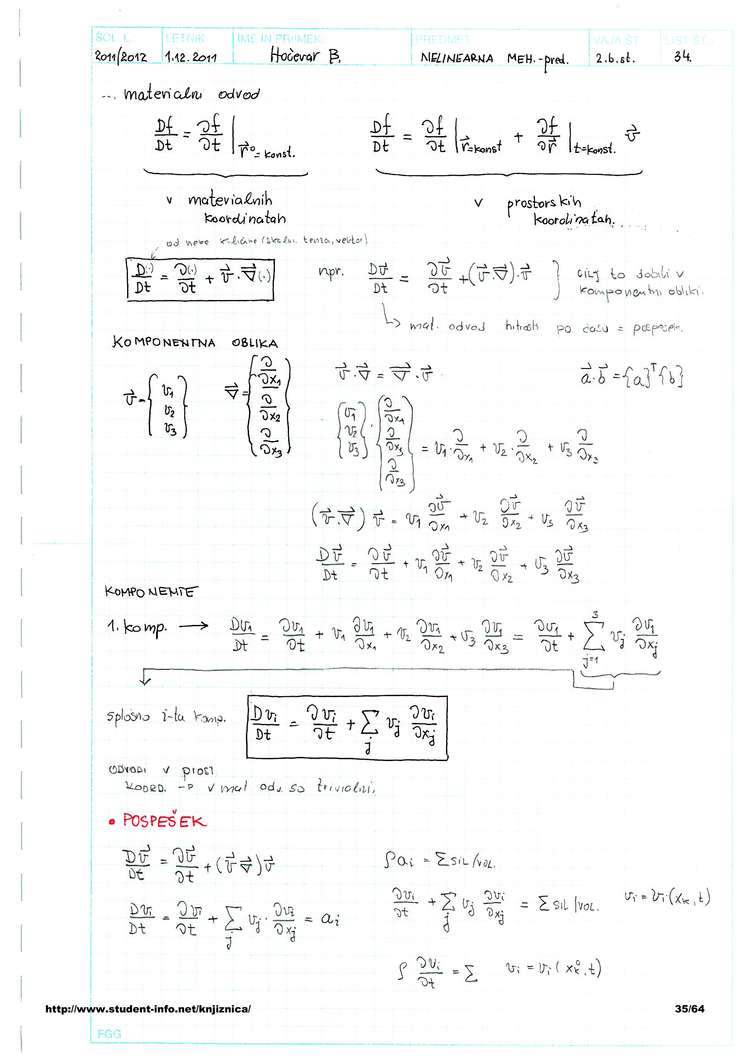 ŠOL. L. LETNIK IME IN PRIIMEK PREDMET VAJA ŠT. LIST ŠT.
2011/2012 1.12.2011 Hočevar B. NELINEARNA MEH.-pred. 2.b.st. 34.
... materialni odvod
Df/Dt = ∂f/∂t |r⃗°=konst. Df/Dt = ∂f/∂t |r⃗=konst + ∂f/∂r⃗ |t=konst. v⃗
v materialnih v prostorskih
koordinatah koordinatah....
od neke (skalar, tenzor, vektor)
D(·)/Dt = ∂(·)/∂t + v⃗·∇⃗(·) npr. Dv⃗/Dt = ∂v⃗/∂t + (v⃗·∇⃗)·v⃗ } cilj to dobiti v
komponentni obliki.
↳ mat. odvod hitrosti po času = pospešek.
KOMPONENTNA OBLIKA
v⃗ = {v1 v2 v3} ∇⃗ = {∂/∂x1 ∂/∂x2 ∂/∂x3} v⃗·∇⃗ = ∇⃗·v⃗ a⃗·b⃗ = {a}ᵀ{b}
{v1 v2 v3}·{∂/∂x1 ∂/∂x3 ∂/∂x3} = v1·∂/∂x1 + v2·∂/∂x2 + v3 ∂/∂x3
(v⃗·∇⃗) v⃗ = v1 ∂v⃗/∂x1 + v2 ∂v⃗/∂x2 + v3 ∂v⃗/∂x3
Dv⃗/Dt = ∂v⃗/∂t + v1 ∂v⃗/∂x1 + v2 ∂v⃗/∂x2 + v3 ∂v⃗/∂x3
KOMPONENTE
1. komp. → Dv1/Dt = ∂v1/∂t + v1 ∂v1/∂x1 + v2 ∂v1/∂x2 + v3 ∂v1/∂x3 = ∂v1/∂t + Σ(j=1..3) vj ∂v1/∂xj
splošno i-ta komp. Dvi/Dt = ∂vi/∂t + Σj vj ∂vi/∂xj
ODVODI V prost
KOORD. → v mat odv. so trivialni.
• POSPEŠEK
Dv⃗/Dt = ∂v⃗/∂t + (v⃗∇⃗)v⃗ ρai = Σ SIL/VOL.
Dvi/Dt = ∂vi/∂t + Σj vj·∂vi/∂xj = ai ∂vi/∂t + Σj vj ∂vi/∂xj = Σ SIL/VOL. vi = vi(xk, t)
ρ ∂vi/∂t = Σ vi = vi(xk°, t)
http://www.student-info.net/knjiznica/ 35/64
FGG